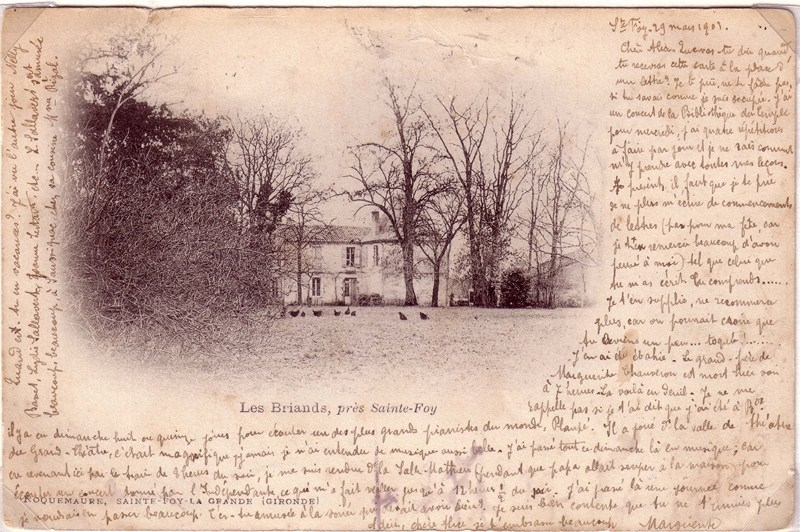 Ste Foy. 29 mars 1903.
Chère Alice. Que vas-tu dire quand
tu recevras cette carte à la place d'
une lettre? Je t'en prie, ne te fâche pas,
si tu savais comme je suis occupée. J'ai
un concert de la Bibliothèque du temple
pour mercredi, j'ai quatre répétitions
à faire par jour et je ne sais comment
m'y prendre avec toutes mes leçons.
à présent, il faut que je te prie
de ne plus m'écrire de commencements
de lettres (pas pour ma fête, car
je t'en remercie beaucoup d'avoir
pensé à moi) tel que celui que
tu m'as écrit. Tu comprends......
Je t'en supplie, ne recommence
plus, car on pourrait croire que
tu deviens un peu... toquée!.......
J'en ai été ébahie. Le grand-père de
Marguerite Chauveron est mort hier soir
à 7 heures. La voilà en deuil. Je ne me
rappelle pas si je t'ai dit que j'ai été à Bdx
il y a eu dimanche huit ou quinze jours pour écouter un des plus grands pianistes du monde, Planté. Il a joué à la salle de théâtre
du Grand-Théâtre, c'était magnifique, jamais je n'ai entendu de musique aussi belle. J'ai passé tout ce dimanche là en musique; car
en revenant ici par le train de 8 heures du soir, je me suis rendue à la Salle Mathieu (pendant que papa allait souper à la maison) pour
écouter un concert donné par l'Indépendante, ce qui m'a fait veiller jusqu'à 12 heures du soir. J'ai passé là une journée comme
je voudrais en passer beaucoup. T'es-tu amusée à la soirée
Je suis bien contente que tu ne t'ennuies plus
chère Alice, je t'embrasse beaucoup. Marguerite
Quand est-tu en vacances? J'ai vu l'autre jour Nelly
beaucoup
Les Briands, près Sainte-Foy
ROQUEMAURE, SAINTE-FOY-LA GRANDE (GIRONDE)